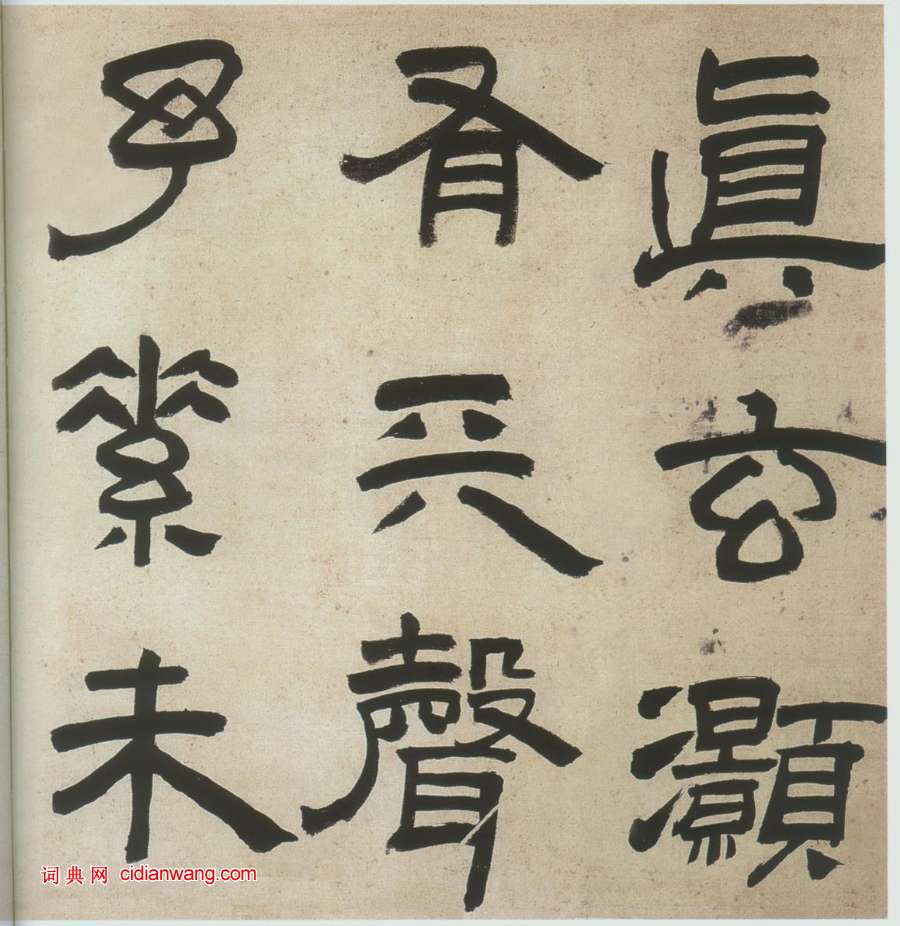 眞玄灝
有聲
素未
词典网 cidianwang.com